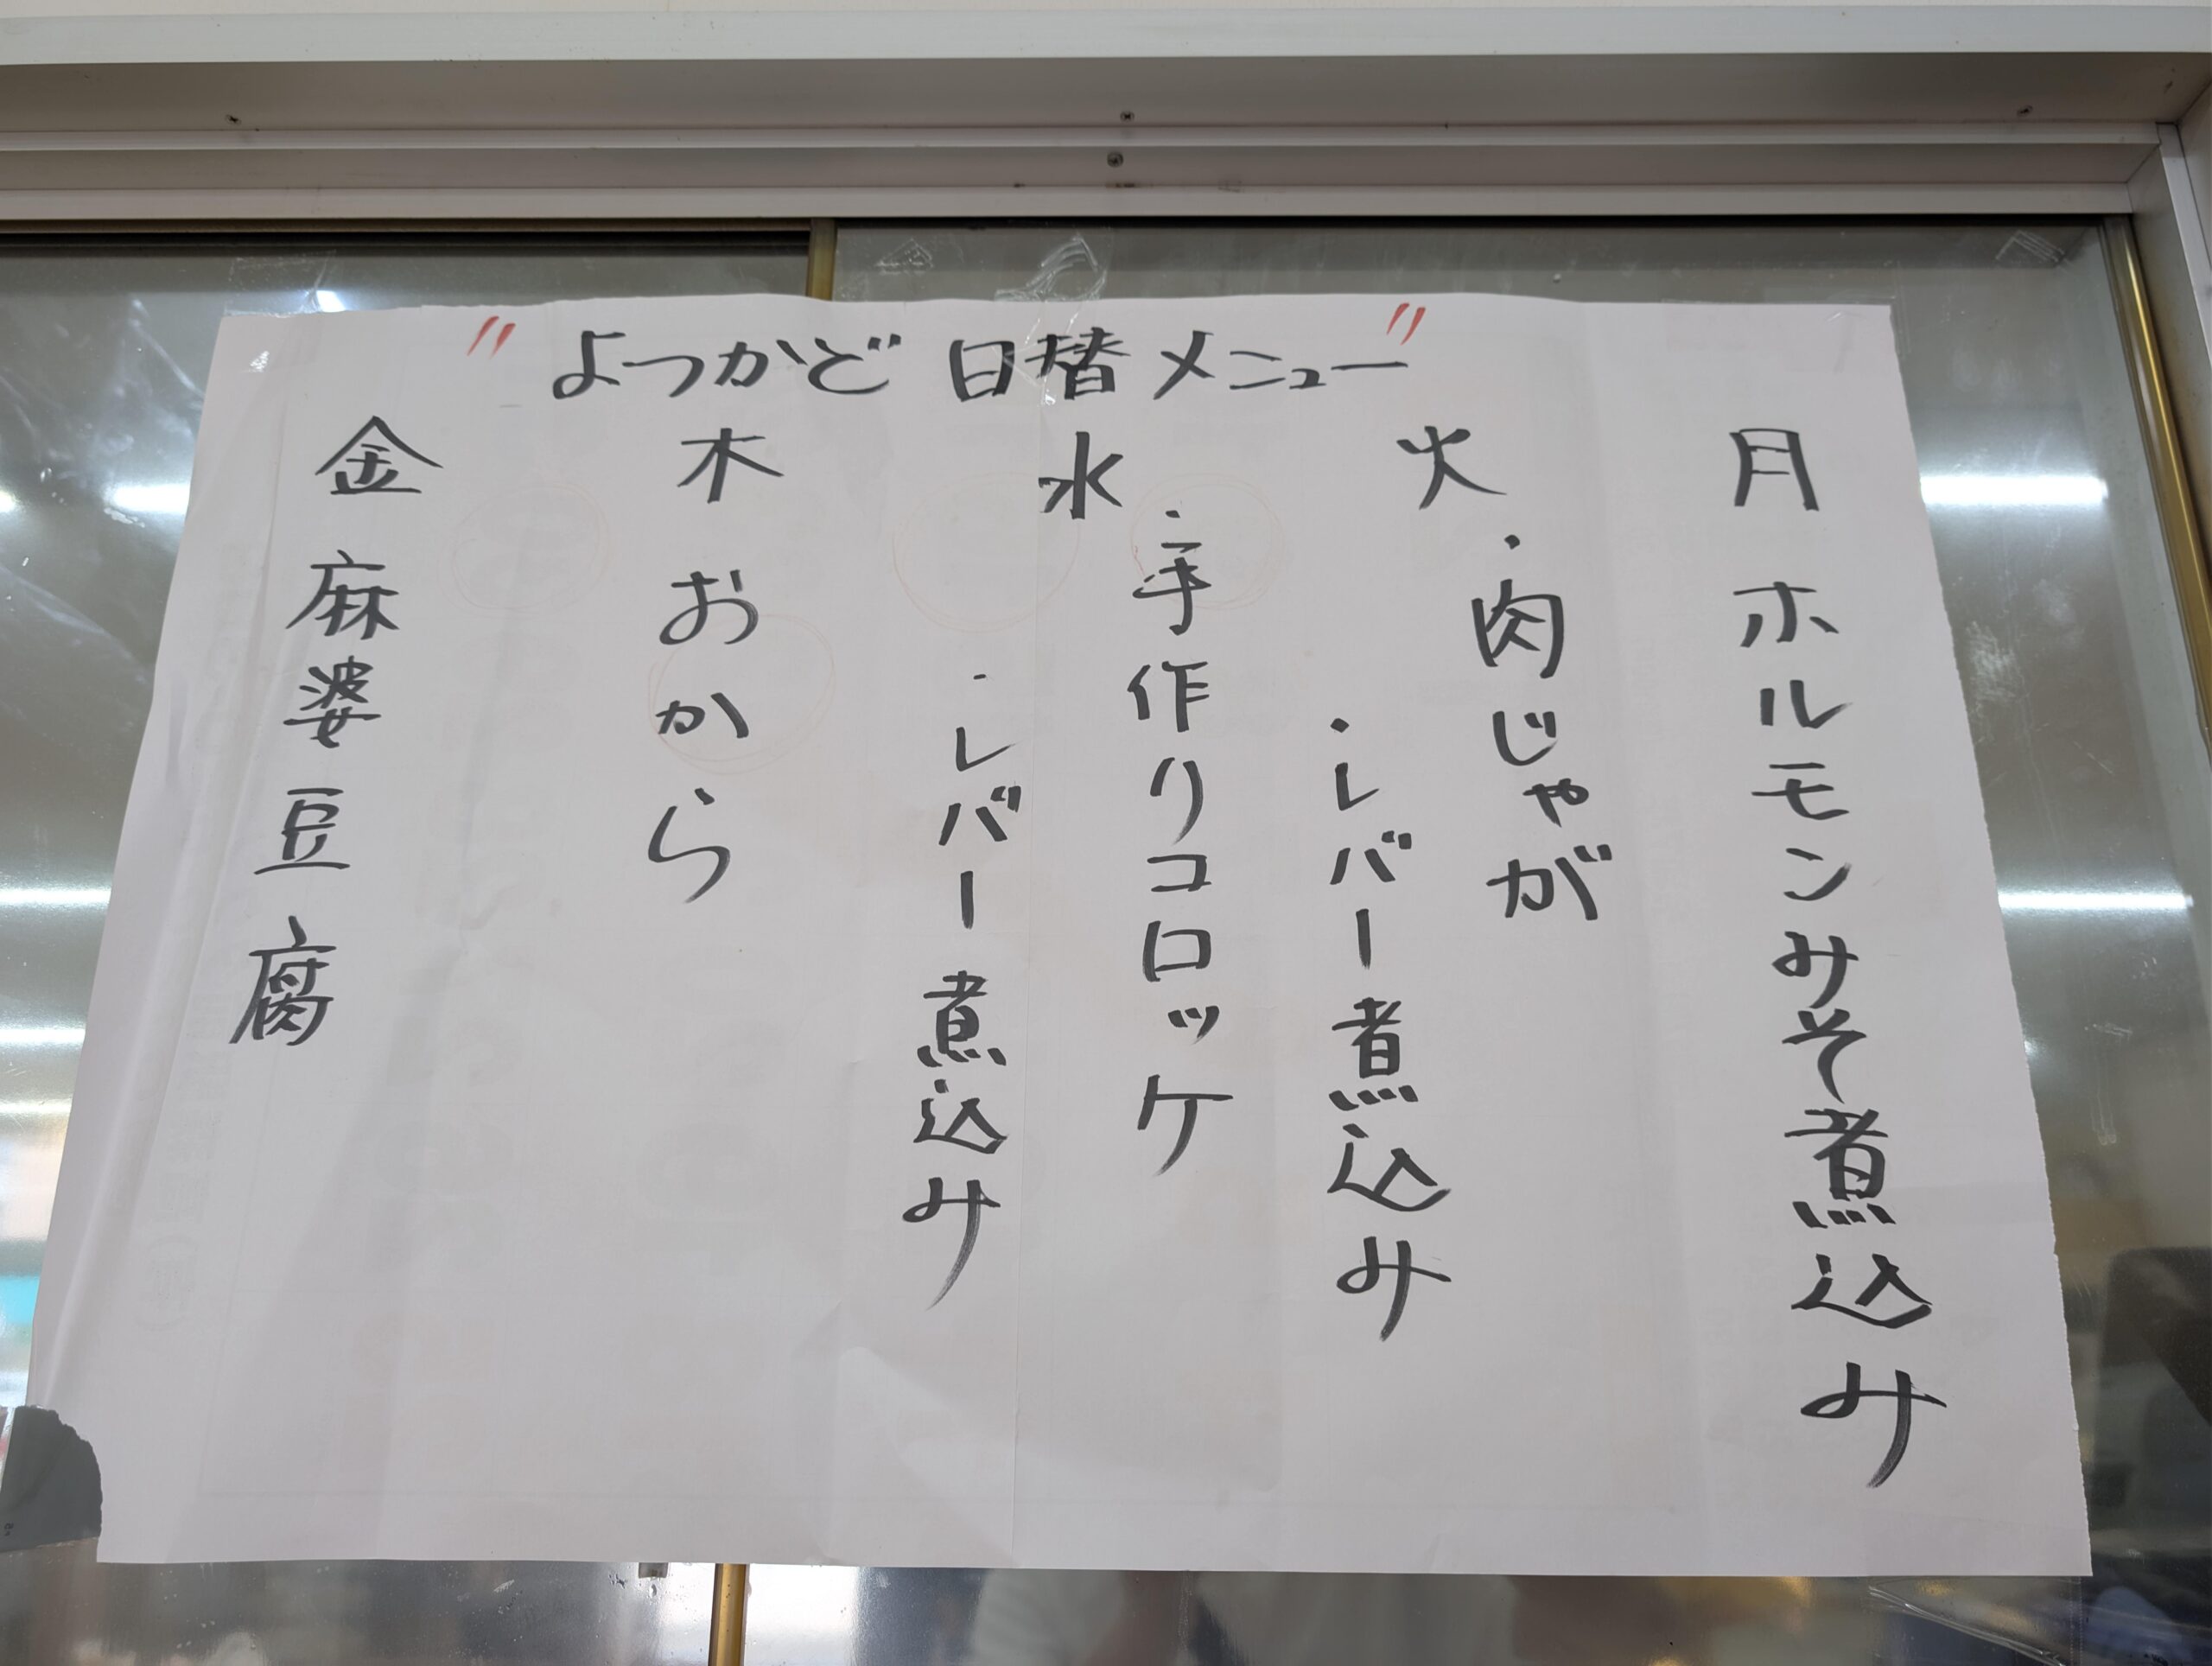 〃よつかど 日替メニュー〃
月 ホルモンみそ煮込み
火 ・肉じゃが
・レバー煮込み
水 ・手作りコロッケ
・レバー煮込み
木 おから
金 麻婆豆腐